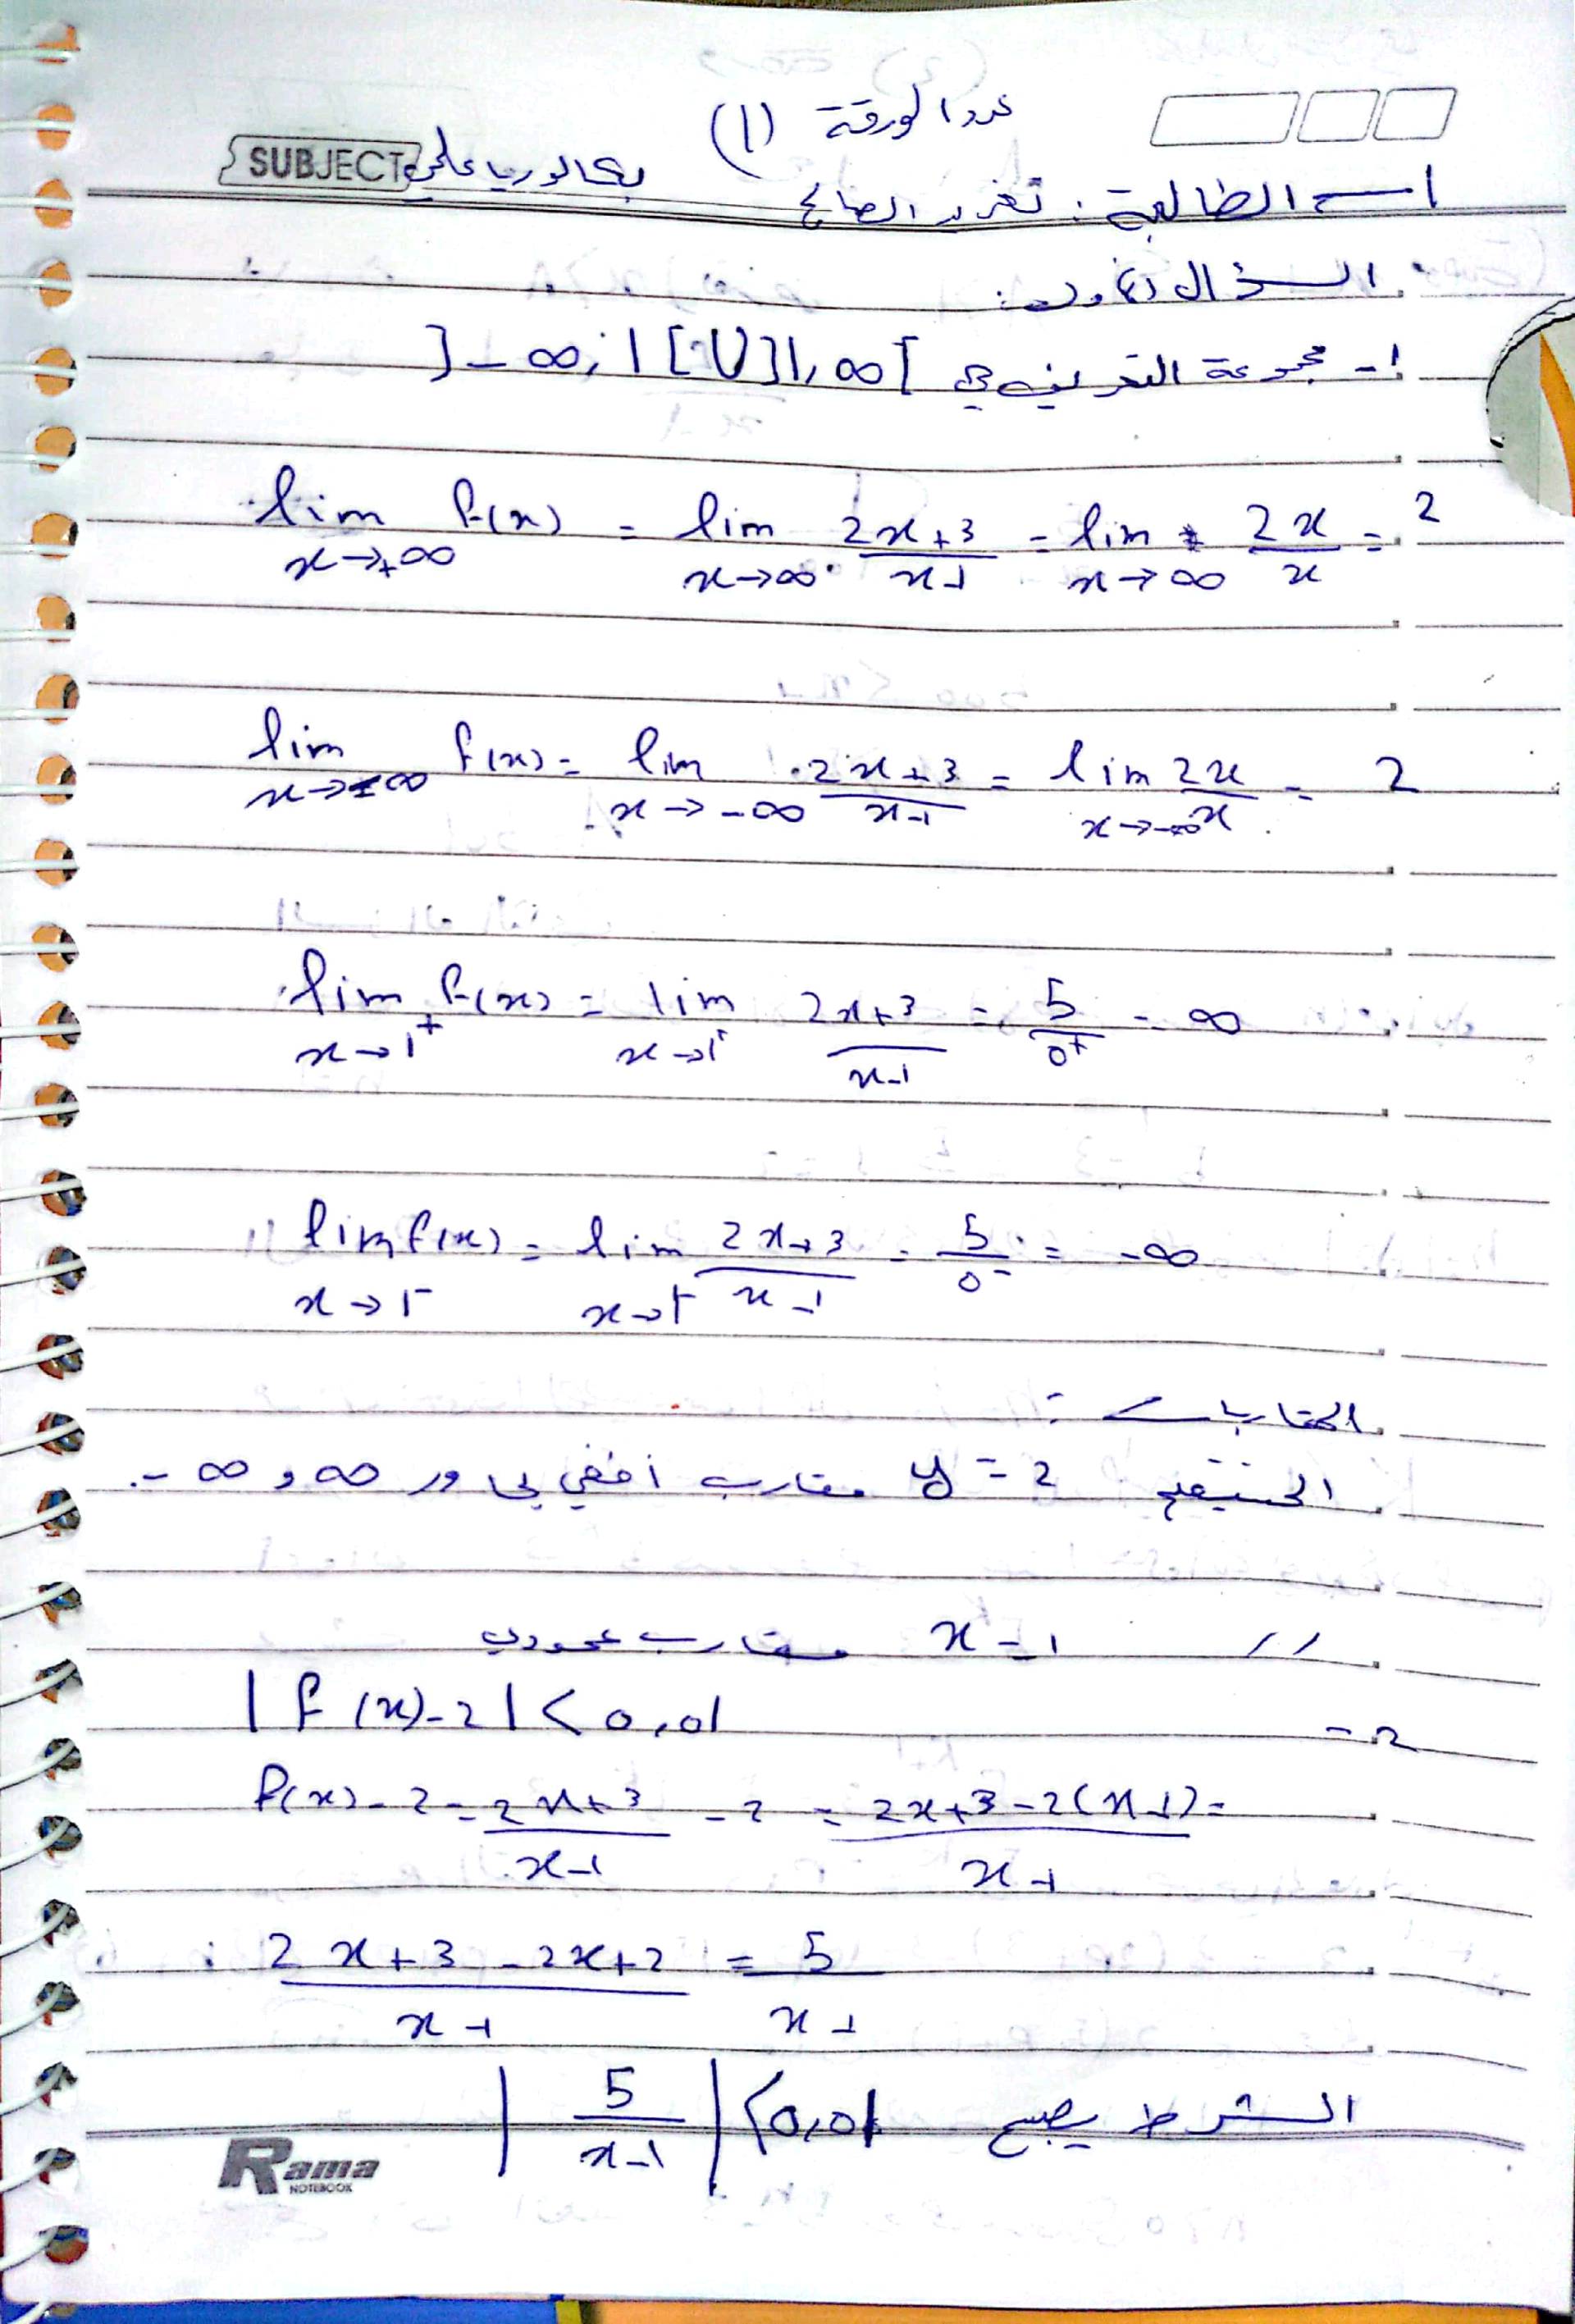 عدد الورقة (1)
SUBJECT بكالوريا علمي
اسم الطالبة : تغريد الصالح
السؤال الأول:
1- مجموعة التعريف هي ]-∞, 1[ U ]1, ∞[
lim x→+∞ f(x) = lim x→∞ (2x+3)/(x-1) = lim x→∞ 2x/x = 2
lim x→-∞ f(x) = lim x→-∞ (2x+3)/(x-1) = lim x→-∞ 2x/x = 2
lim x→1⁺ f(x) = lim x→1⁺ (2x+3)/(x-1) = 5/0⁺ = ∞
lim x→1⁻ f(x) = lim x→1⁻ (2x+3)/(x-1) = 5/0⁻ = -∞
المقاربات :
المستقيم y = 2 مقارب أفقي بجاور ∞ و ∞-
// x = 1 مقارب عمودي
2- |f(x)-2| < 0,01
f(x)-2 = (2x+3)/(x-1) - 2 = (2x+3-2(x-1))/(x-1) =
(2x+3-2x+2)/(x-1) = 5/(x-1)
الشرط يصبح |5/(x-1)| < 0,01
Rama
NOTEBOOK